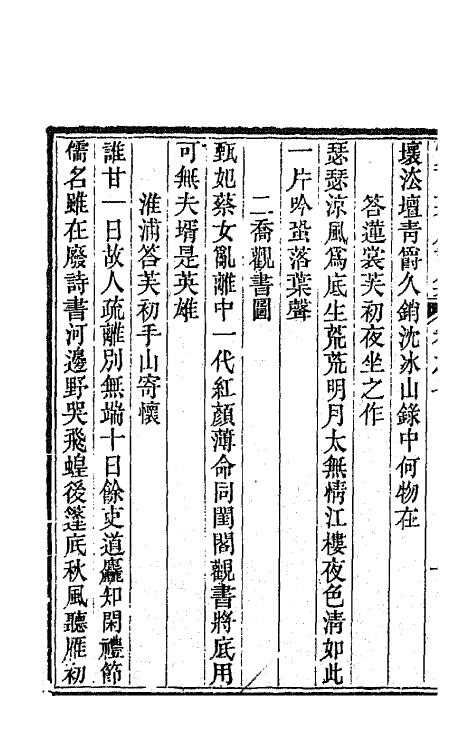 壞泫壇靑爵久銷沈冰山錄中何物在
答蓮裳芙初夜坐之作
瑟瑟涼風爲底生荒荒明月太無情江樓夜色淸如此
一片吟蛩落葉聲
二喬觀書圖
甄妃蔡女亂離中一代紅顏薄命同閨閣觀書將底用
可無夫壻是英雄
淮浦答芙初手山寄懷
誰甘一日故人疏離別無端十日餘吏道麤知閑禮節
儒名雖在廢詩書河邊野哭飛蝗後篷底秋風聽雁初